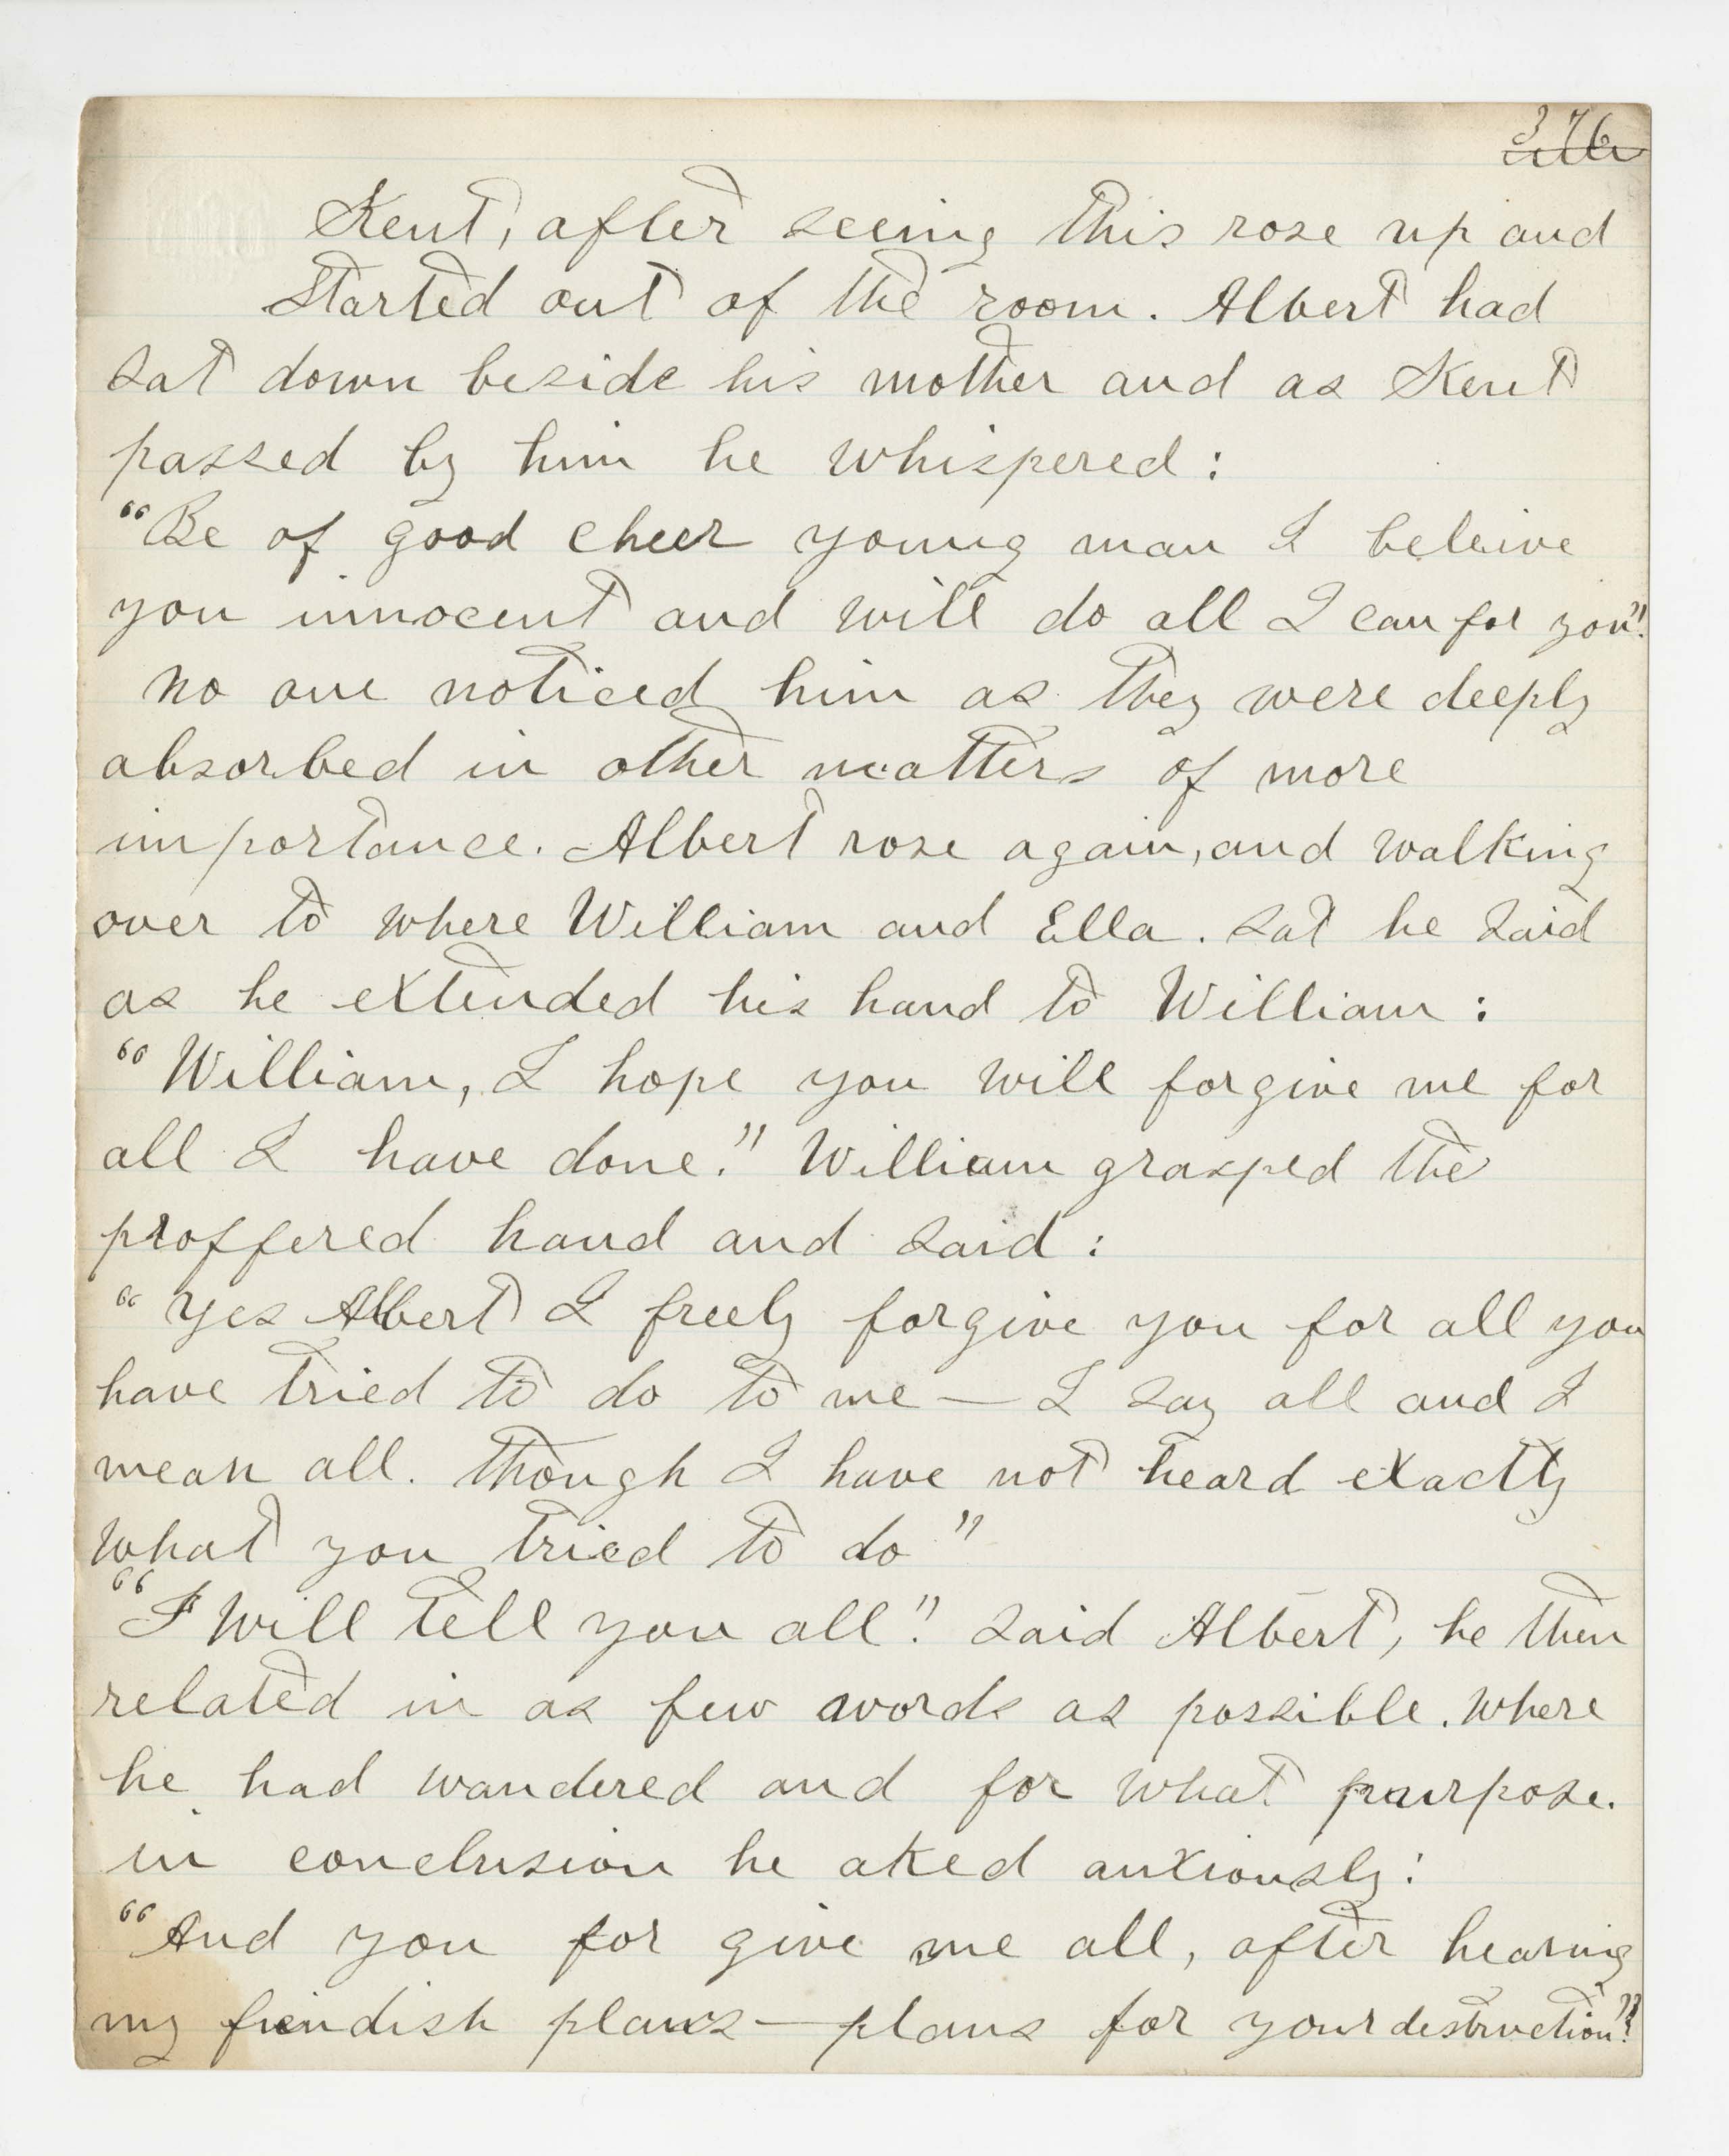 376
Kent, after seeing this rose up and
started out of the room. Albert had
sat down beside his mother and as Kent
passed by him he whispered :
"Be of good cheer young man I beleive
you innocent and will do all I can for you".
no one noticed him as they were deeply
absorbed in other matters of more
importance. Albert rose again, and walking
over to where William and Ella. sat he said
as he extended his hand to William :
"William, I hope you will forgive me for
all I have done." William grasped the
proffered hand and said :
"Yes Albert I freely forgive you for all you
have tried to do to me — I say all and I
mean all. though I have not heard exactly
what you tried to do"
"I will tell you all". said Albert, he then
related in as few words as possible. where
he had wandered and for what purpose.
in conclusion he aked anxiously:
"And you for give me all, after hearing
my fiendish plans — plans for your destruction?"